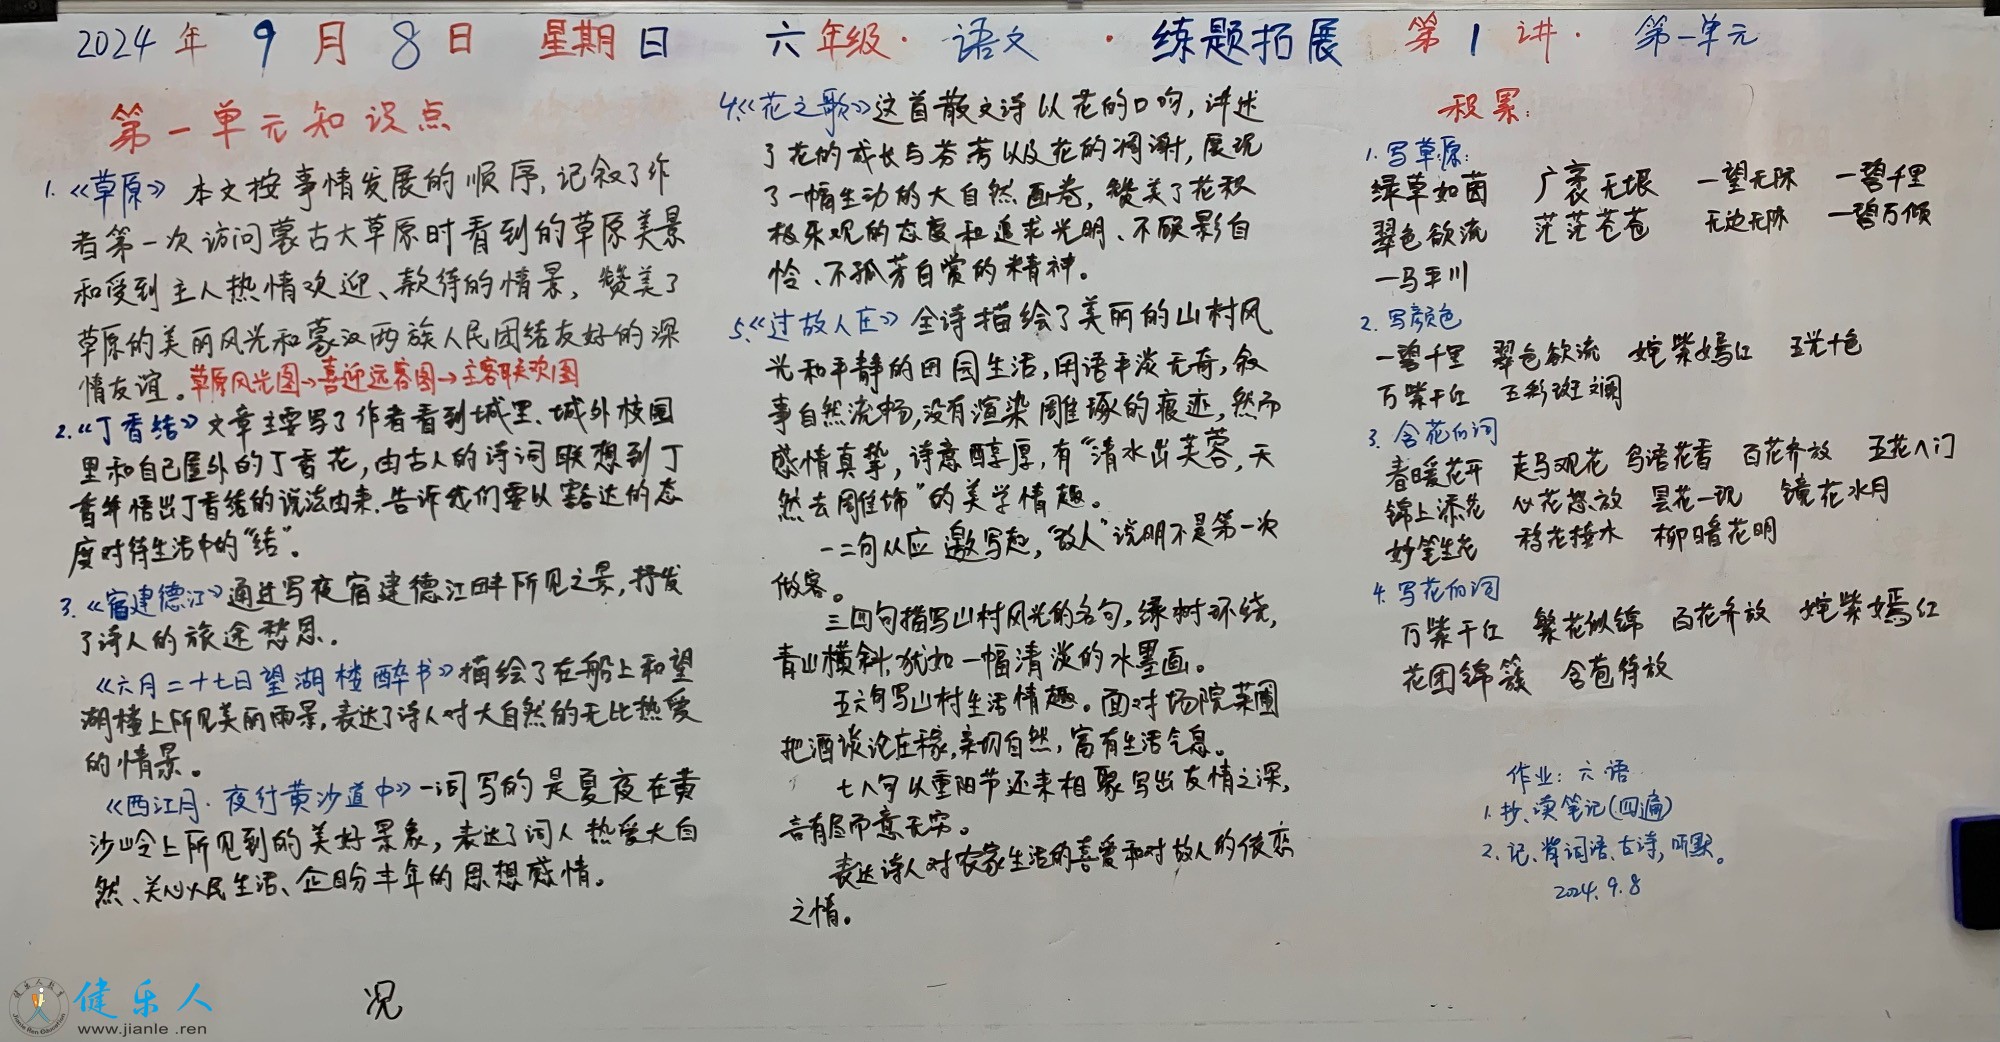 2024年 9月8日 星期日 六年级·语文·练题拓展 第1讲·第一单元
第一单元知识点
1.《草原》本文按事情发展的顺序,记叙了作
者第一次访问蒙古大草原时看到的草原美景
和受到主人热情欢迎、款待的情景,赞美了
草原的美丽风光和蒙汉两族人民团结友好的深
情友谊。草原风光图→喜迎远客图→主客联欢图
2.《丁香结》文章主要写了作者看到城里、城外校园
里和自己屋外的丁香花,由古人的诗词联想到丁
香并悟出丁香结的说法由来.告诉我们要以豁达的态
度对待生活中的“结”。
3.《宿建德江》通过写夜宿建德江畔所见之景,抒发
了诗人的旅途愁思.
《六月二十七日望湖楼醉书》描绘了在船上和望
湖楼上所见美丽雨景,表达了诗人对大自然的无比热爱
的情景。
《西江月·夜行黄沙道中》一词写的是夏夜在黄
沙岭上所见到的美好景象,表达了词人热爱大自
然、关心人民生活、企盼丰年的思想感情。
况
4.《花之歌》这首散文诗以花的口吻,讲述
了花的成长与芬芳以及花的凋谢,展现
了一幅生动的大自然画卷,赞美了花积
极乐观的态度和追求光明、不顾影自
怜、不孤芳自赏的精神.
5.《过故人庄》全诗描绘了美丽的山村风
光和平静的田园生活,用语平淡无奇,叙
事自然流畅,没有渲染雕琢的痕迹,然而
感情真挚,诗意醇厚,有“清水出芙蓉,天
然去雕饰”的美学情趣。
一二句从应邀写起,“故人”说明不是第一次
做客。
三四句描写山村风光的名句,绿树环绕,
青山横斜,犹如一幅清淡的水墨画。
五六句写山村生活情趣。面对场院菜圃
把酒谈论庄稼,亲切自然,富有生活气息。
七八句以重阳节还来相聚写出友情之深,
言有尽而意无穷。
表达诗人对农家生活的喜爱和对故人的依恋
之情。
积累:
1.写草原:
绿草如茵 广袤无垠 一望无际 一碧千里
翠色欲流 茫茫苍苍 无边无际 一碧万顷
一马平川
2.写颜色
一碧千里 翠色欲流 姹紫嫣红 五光十色
万紫千红 五彩斑斓
3.含花的词
春暖花开 走马观花 鸟语花香 百花齐放 五花八门
锦上添花 心花怒放 昙花一现 镜花水月
妙笔生花 移花接木 柳暗花明
4.写花的词
万紫千红 繁花似锦 百花齐放 姹紫嫣红
花团锦簇 含苞待放
作业:六语
1.抄、读笔记(四遍)
2.记、背词语、古诗,听默。
2024.9.8
健乐人
www.jianle.ren